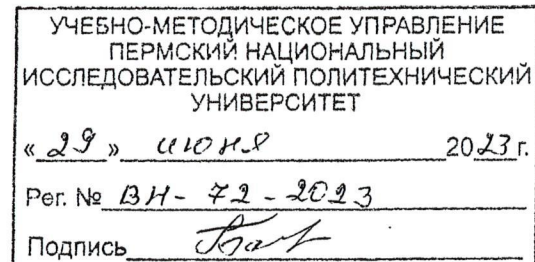 УЧЕБНО-МЕТОДИЧЕСКОЕ УПРАВЛЕНИЕ
ПЕРМСКИЙ НАЦИОНАЛЬНЫЙ
ИССЛЕДОВАТЕЛЬСКИЙ ПОЛИТЕХНИЧЕСКИЙ
УНИВЕРСИТЕТ
« 29 » июня 2023 г.
Рег. № ВН - 72 - 2023
Подпись